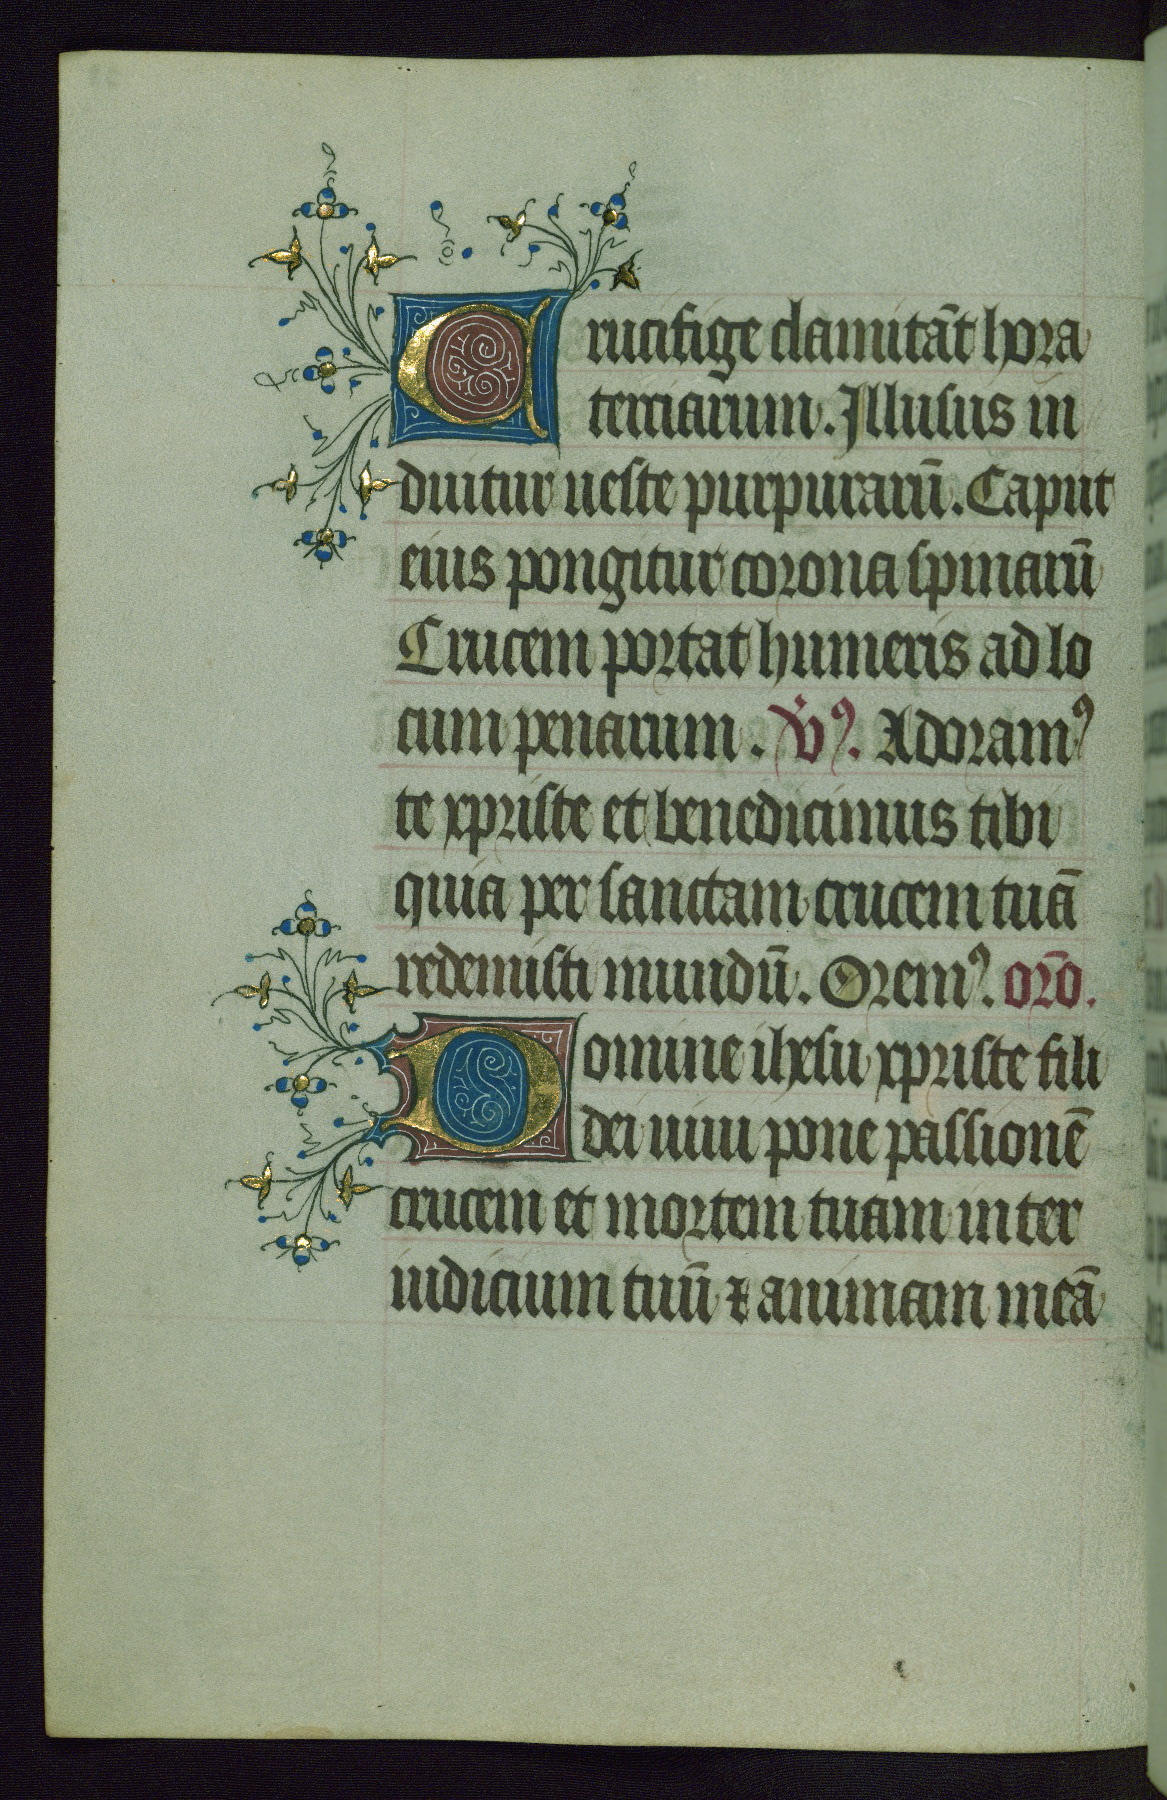 Crucifige clamitāt hora
terciarum. Illusus in
duitur ueste purpurarū. Caput
eius pongitur corona spinarū
Crucem portat humeris ad lo
cum penarum. V̄ꝰ. Adoramꝰ
te xpriste et benedicimus tibi
quia per sanctam crucem tuā
redemisti mundū. Oremꝰ. orō.
Domine ihesu xpriste fili
dei uiui pone passionē
crucem et mortem tuam inter
iudicium tuū ⁊ animam meā